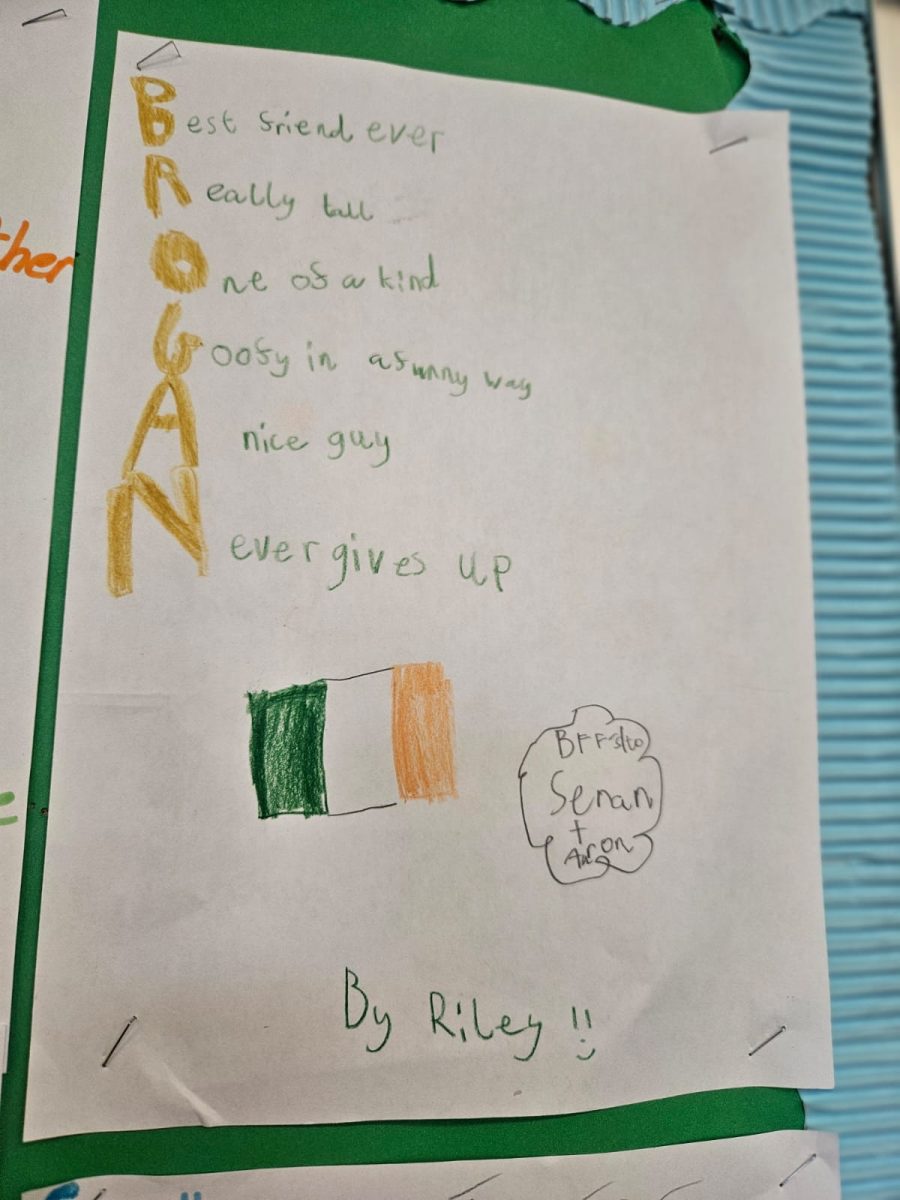 Best friend ever
Really tall
One of a kind
Goofy in a funny way
A nice guy
Never gives up
BFF's to
Senan
+
Aaron
By Riley !!
ther